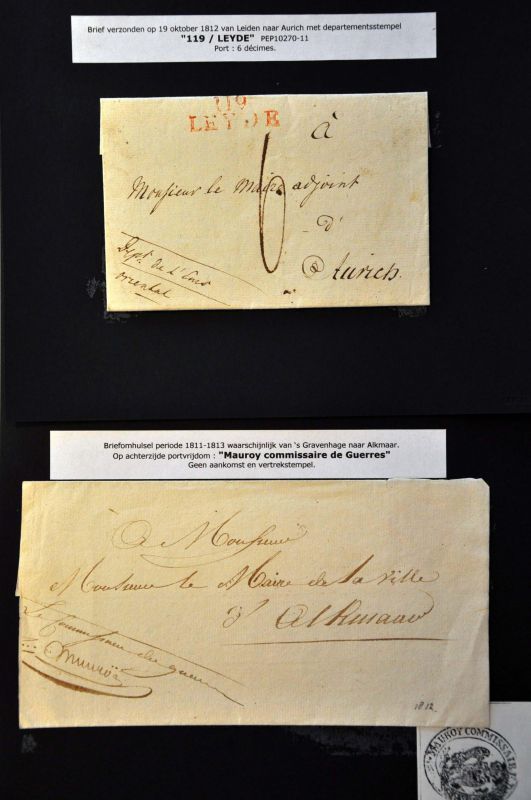 Brief verzonden op 19 oktober 1812 van Leiden naar Aurich met departementsstempel
"119 / LEYDE" PEP10270-11
Port : 6 décimes.
119
LEYDE
à
Monsieur le Maire adjoint
6
d'
à Aurich
Dept. de l'Ems
oriental
Briefomhulsel periode 1811-1813 waarschijnlijk van 's Gravenhage naar Alkmaar.
Op achterzijde portvrijdom : "Mauroy commissaire de Guerres"
Geen aankomst en vertrekstempel.
A Monsieur
Monsieur le Maire de la ville
d'Alkmaar
Le Commissaire des guerres
Mauroy
1812
MAUROY COMMISSAIRE